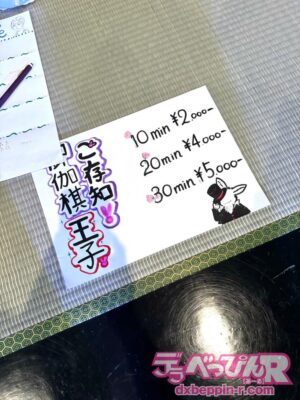 ご存知
伽棋
王子
10min ¥2000-
20min ¥4000-
30min ¥5000-
デラべっぴんR
dxbeppin-r.com